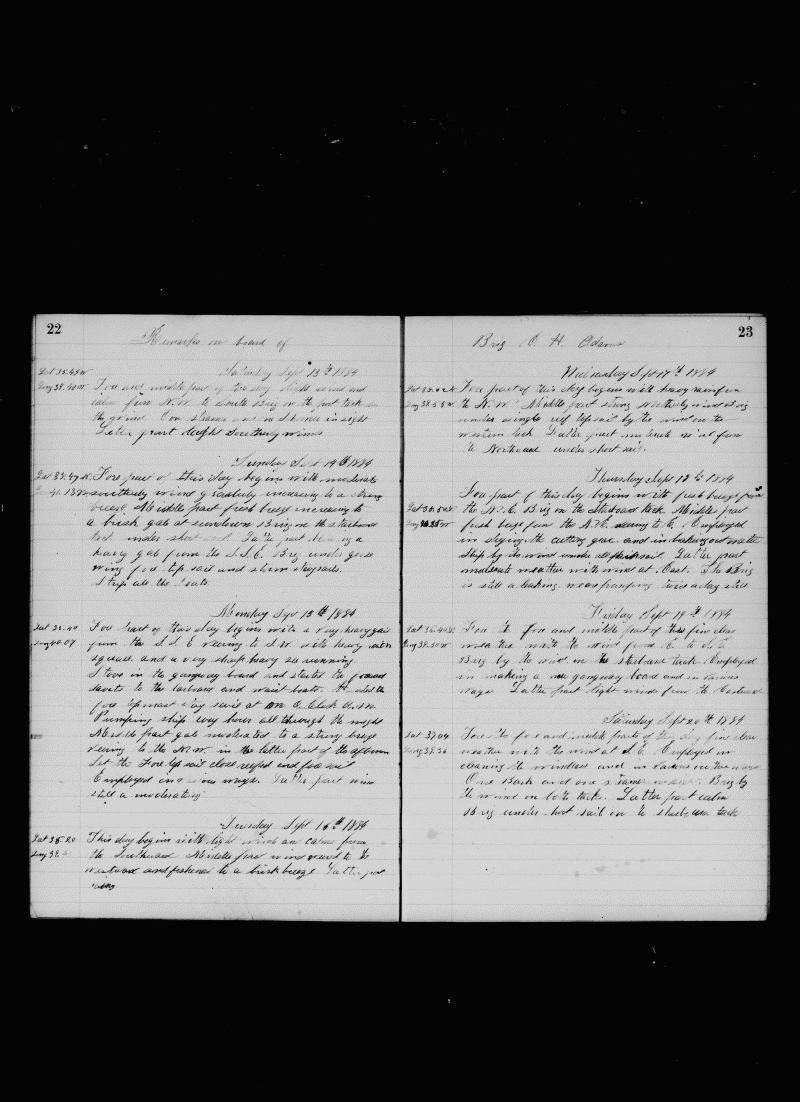 22
Remarks on board of
Saturday Sept 13th 1884
Lat 35.49 N
Long 39.40 W
Fore and middle part of this day light wind and
calm from N.W. to South Brig on the port tack by
the wind One steamer and in sight
Latter part light Southerly winds
Sunday Sept 14th 1884
Fore part of this day begins with moderate
southerly wind gradually increasing to a strong
breeze Middle part fresh breeze increasing to
a brisk gale at sundown Brig on the starboard
tack under short sail Latter part blowing a
heavy gale from the S.S.E. Brig under goose
wing fore top sail and storm staysails
all the boats
Monday Sept 15th 1884
Lat 35.40
Long 40.07
Fore part of this day begins with a very heavy gale
from the S.S.E veering to S.W. with heavy
squalls and a very sharp heavy sea running
Stove in the gangway board and started the forward
davits to the larboard and waist boats
fore top mast stay sail at O Clock A.M.
Pumping ship every hour all through the night
Middle part gale moderated to a strong breeze
veering to the N.W. in the latter part of the afternoon
Set the Fore top sail close reefed and fore sail
Employed in various ways. Latter part wind
still a moderating
Tuesday Sept 16th 1884
Lat 35.20
Long 39
This day begins with light wind and calms from
the Southward Middle part wind veered to the
westward and freshened to a brisk breeze Latter part
23
Brig O. H. Adams
Wednesday Sept 17th 1884
Fore part of this day begins with heavy rain from
the N.W. Middle part strong Northerly wind Brig
under single reef topsail by the wind on the
western tack Latter part moderate wind from
the Northward under short sail.
Thursday Sept 18th 1884
Fore part of this day begins with fresh breeze from
the N.E. Brig on the Starboard tack Middle part
fresh breeze from the N.E. veering to E. Employed
in drying the cutting gear and in
Ship by the wind under sail. Latter part
moderate weather with wind at East. The Brig
is still a leaking pumping twice a day still
Friday Sept 19th 1884
Lat 35.40 N
Long 39.30 W
For the fore and middle part of this fine clear
weather with the wind from E. to S.E.
Brig by the wind on the starboard tack. Employed
in making a new gangway board and in various
ways. Latter part light winds from the Eastward
Saturday Sept 20th 1884
Lat 37.04
Long 39.36
For the fore and middle parts of the day fine clear
weather with the wind at S.E. Employed in
cleaning the windlass and in various other ways
One Bark and one steamer in sight. Brig by
the wind on both tacks. Latter part calm
Brig under short sail on the starboard tack